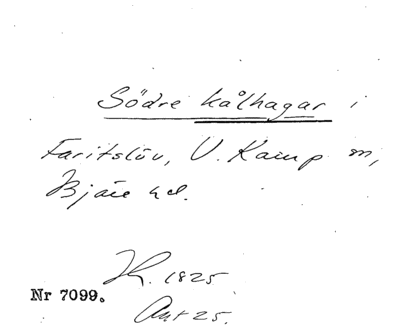 Södre kålhagar i
Faritslöv, V. Karup sn,
Bjäre hd.
K. 1825.
Nr 7099.
Akt 25.